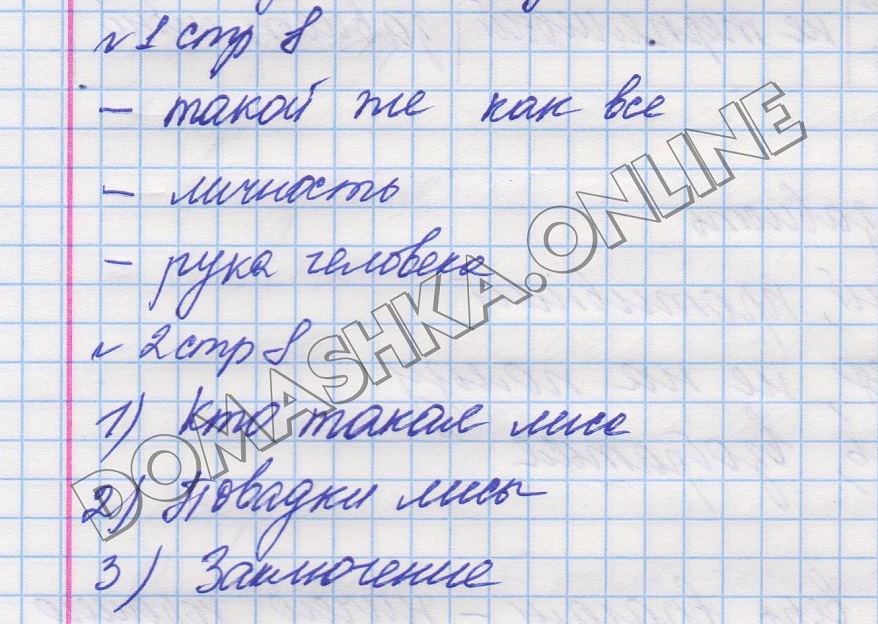 №1 стр 8
– такой же как все
– личность
– рука человека
№ 2 стр 8
1) Кто такая лиса
2) Повадки лисы
3) Заключение
DOMASHKA.ONLINE